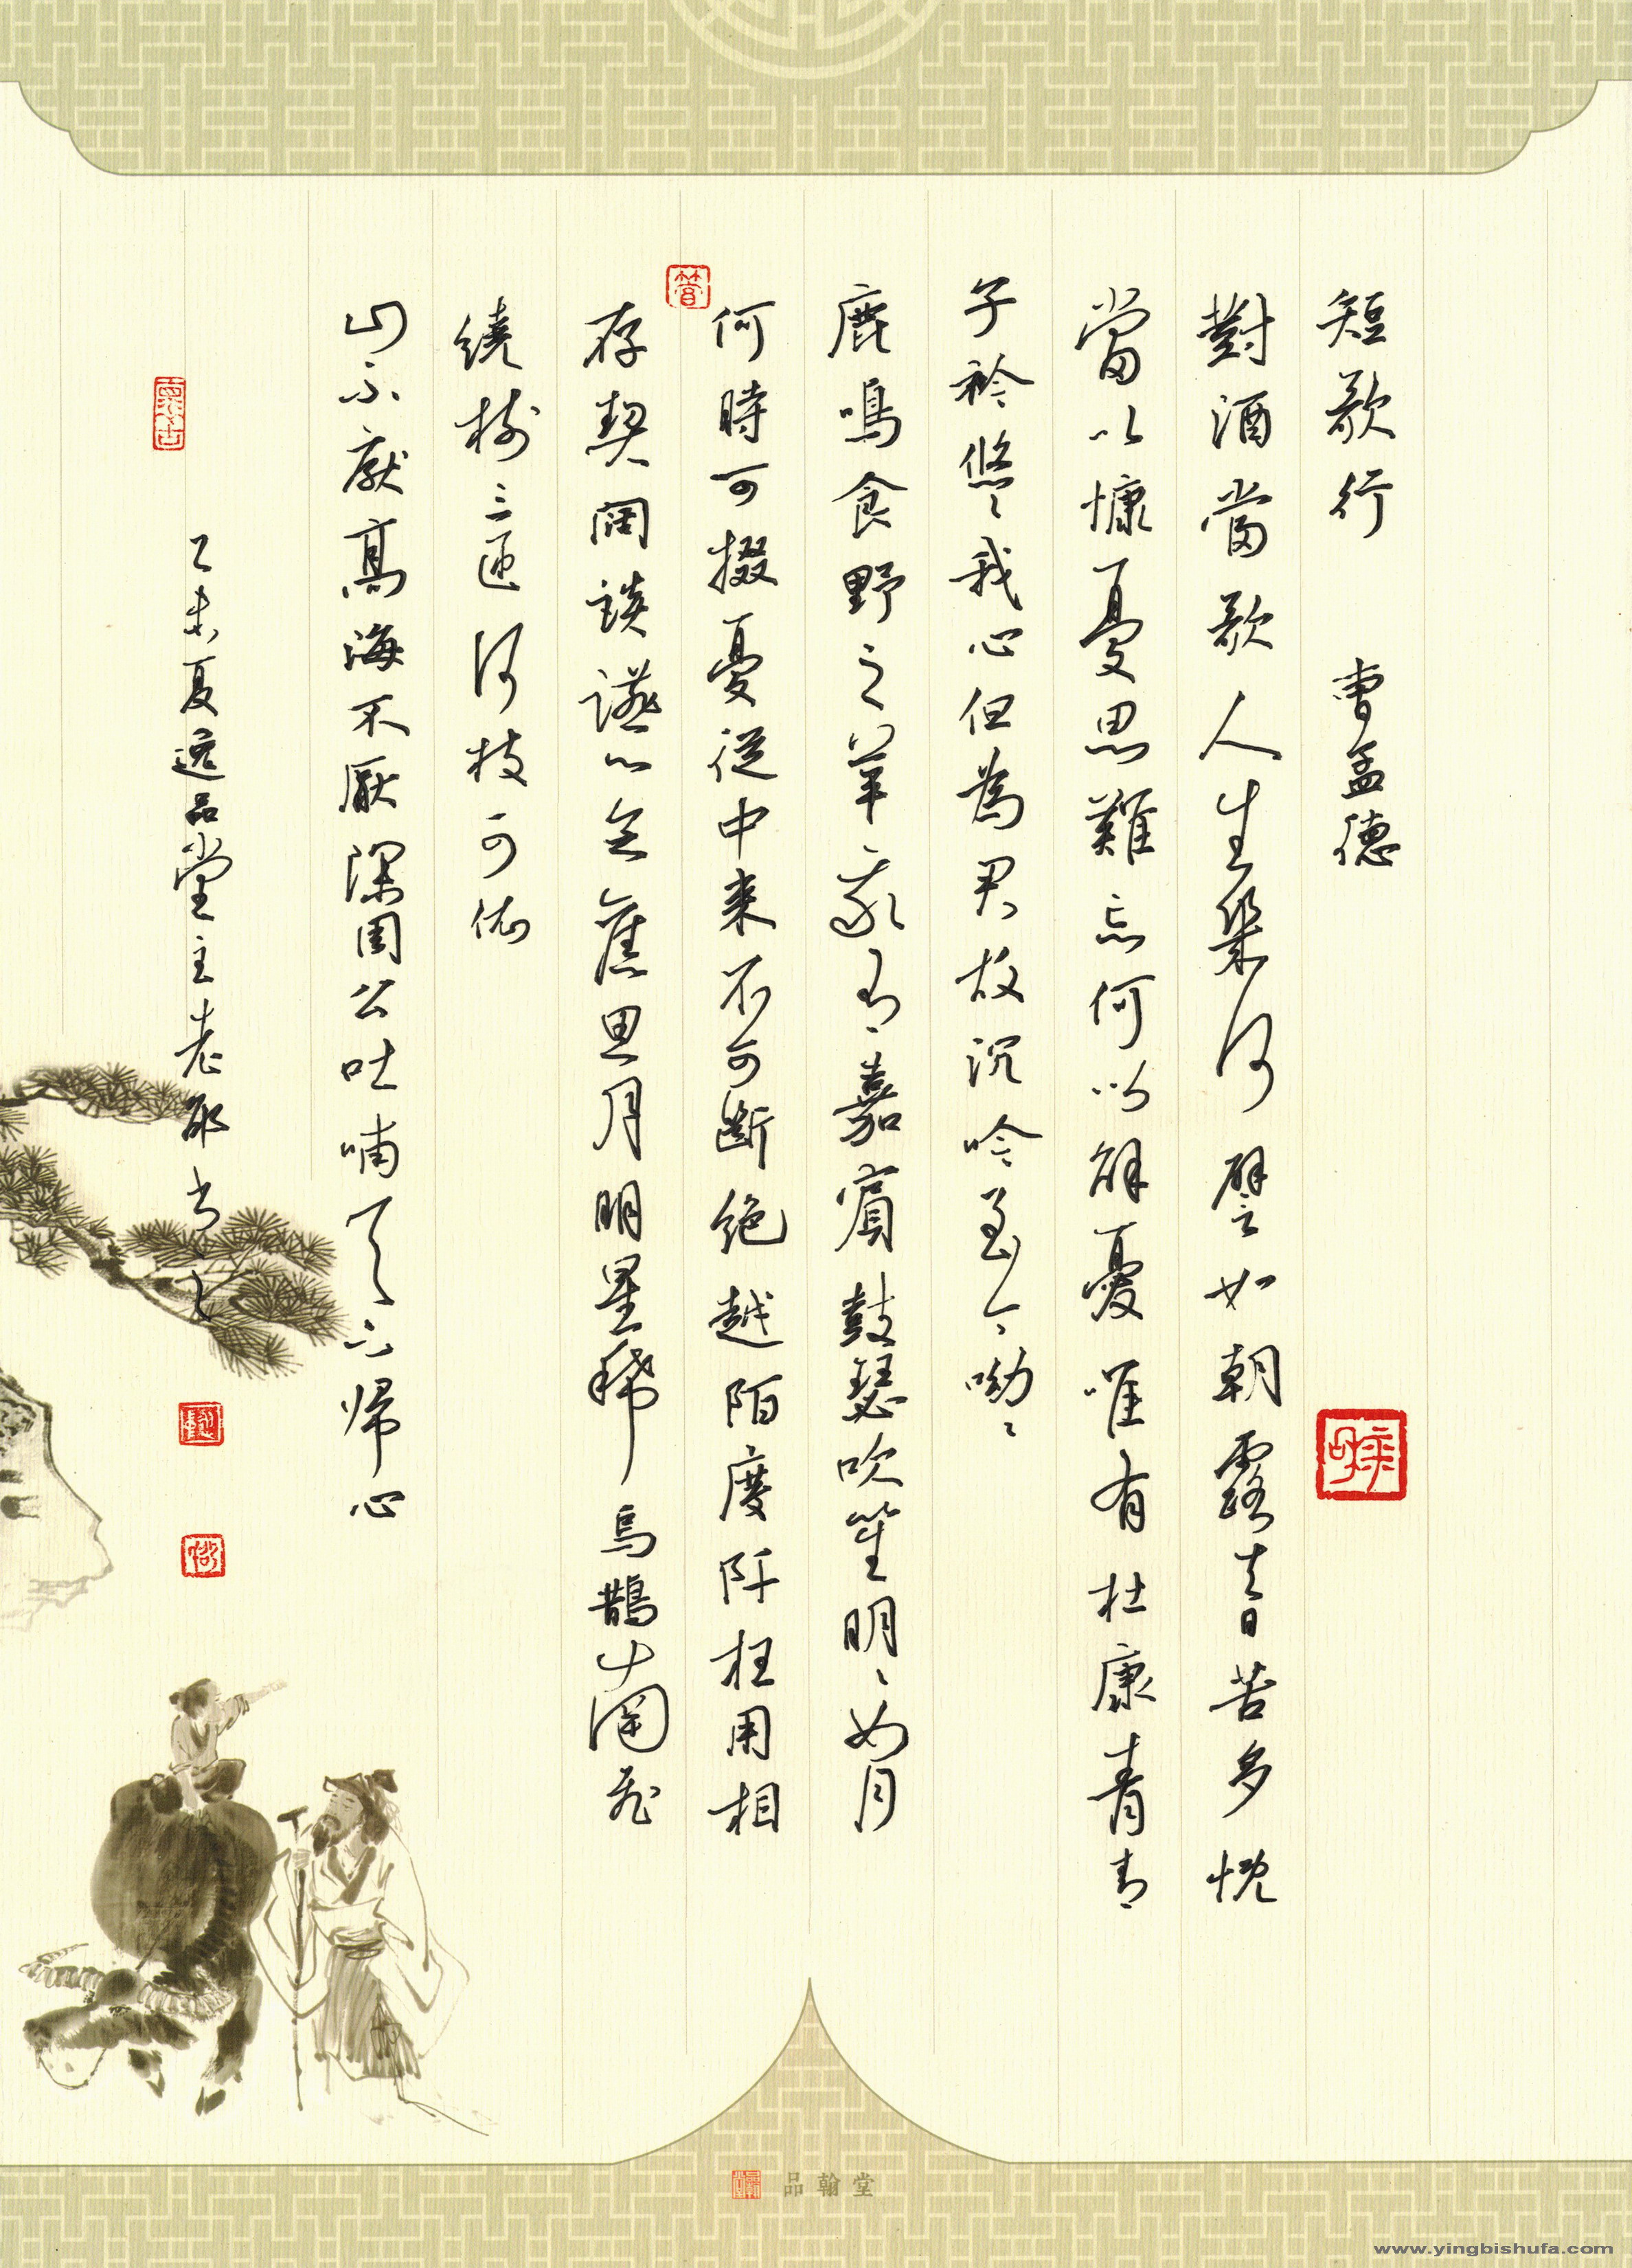 短歌行 曹孟德
對酒當歌人生幾何譬如朝露去日苦多慨
當以慷憂思難忘何以解憂唯有杜康青青
子衿悠〻我心但為君故沉吟至今呦〻
鹿鳴食野之苹我有嘉賓鼓瑟吹笙明〻如月
何時可掇憂從中来不可斷絕越陌度阡枉用相
存契闊談讌心念舊恩月明星稀烏鵲南飛
繞樹三匝何枝可依
山不厭高海不厭深周公吐哺天下帰心
乙未夏逸品堂主老邪书之
品翰堂
www.yingbishufa.com